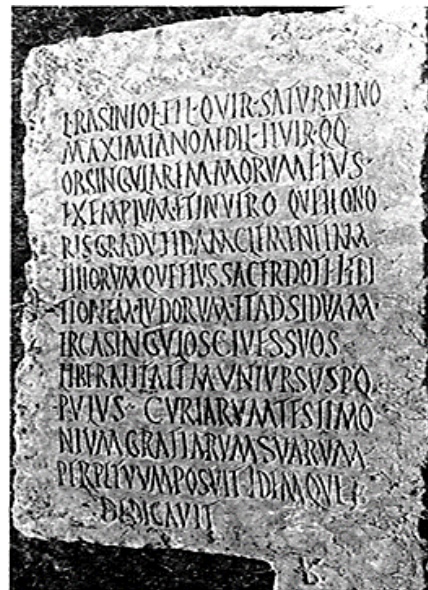 L·RASINIO L·FIL·QVIR·SATVRNINO
MAXIMIANO AEDIL·IIVIR·QQ
OB SINGVLAREM MORVM EIVS·
EXEMPLVM ET IN VTRO QVE HONO
RIS GRADV FIDAM CLEMENTIAM
FILIORVMQVE EIVS SACERDOTI·ET EDI
TIONEM·LVDORVM·ET ADSIDVAM·
ERCA SINGVLOS CIVES SVOS
LIBERALITATEM VNIVERSVS PO
PVLVS· CVRIARVM TESTIMO
NIVM GRATIARVM SVARVM
PERPETVVM POSVIT IDEMQVE
DEDICAVIT